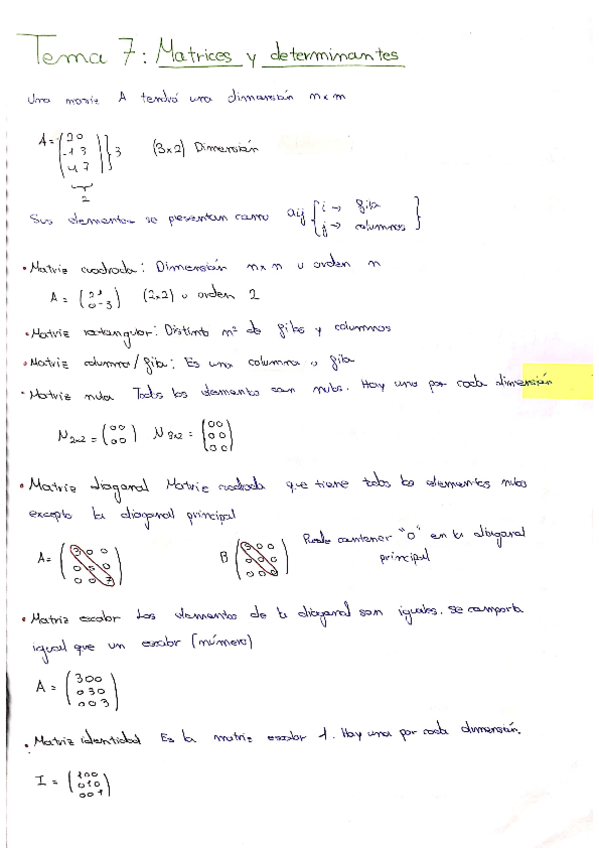 Tema 7: Matrices y determinantes
Una matriz A tendrá una dimensión n×m
A = (2 0
-1 3
4 7) } 3 (3×2) Dimensión
2
Sus elementos se presentan como aij { i → fila
j → columnas }
• Matriz cuadrada: Dimensión n×n u orden n
A = (2 1
0 -3) (2×2) u orden 2
• Matriz rectangular: Distinto nº de filas y columnas
• Matriz columna/fila: Es una columna o fila
• Matriz nula Todos los elementos son nulos. Hay una por cada dimensión
N2×2 = (0 0
0 0) N3×2 = (0 0
0 0
0 0)
• Matriz diagonal Matriz cuadrada que tiene todos los elementos nulos
excepto la diagonal principal
A = (3 0 0
0 5 0
0 0 7) B (3 0 0
0 0 0
0 0 0) Puede contener "0" en la diagonal
principal
• Matriz escalar Los elementos de la diagonal son iguales. Se comporta
igual que un escalar (número)
A = (3 0 0
0 3 0
0 0 3)
• Matriz identidad Es la matriz escalar 1. Hay una por cada dimensión.
I = (1 0 0
0 1 0
0 0 1)